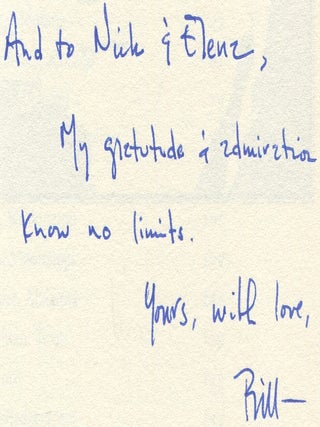 And to Nick & Elena,
My gratitude & admiration
know no limits.
Yours, with love,
Bill—